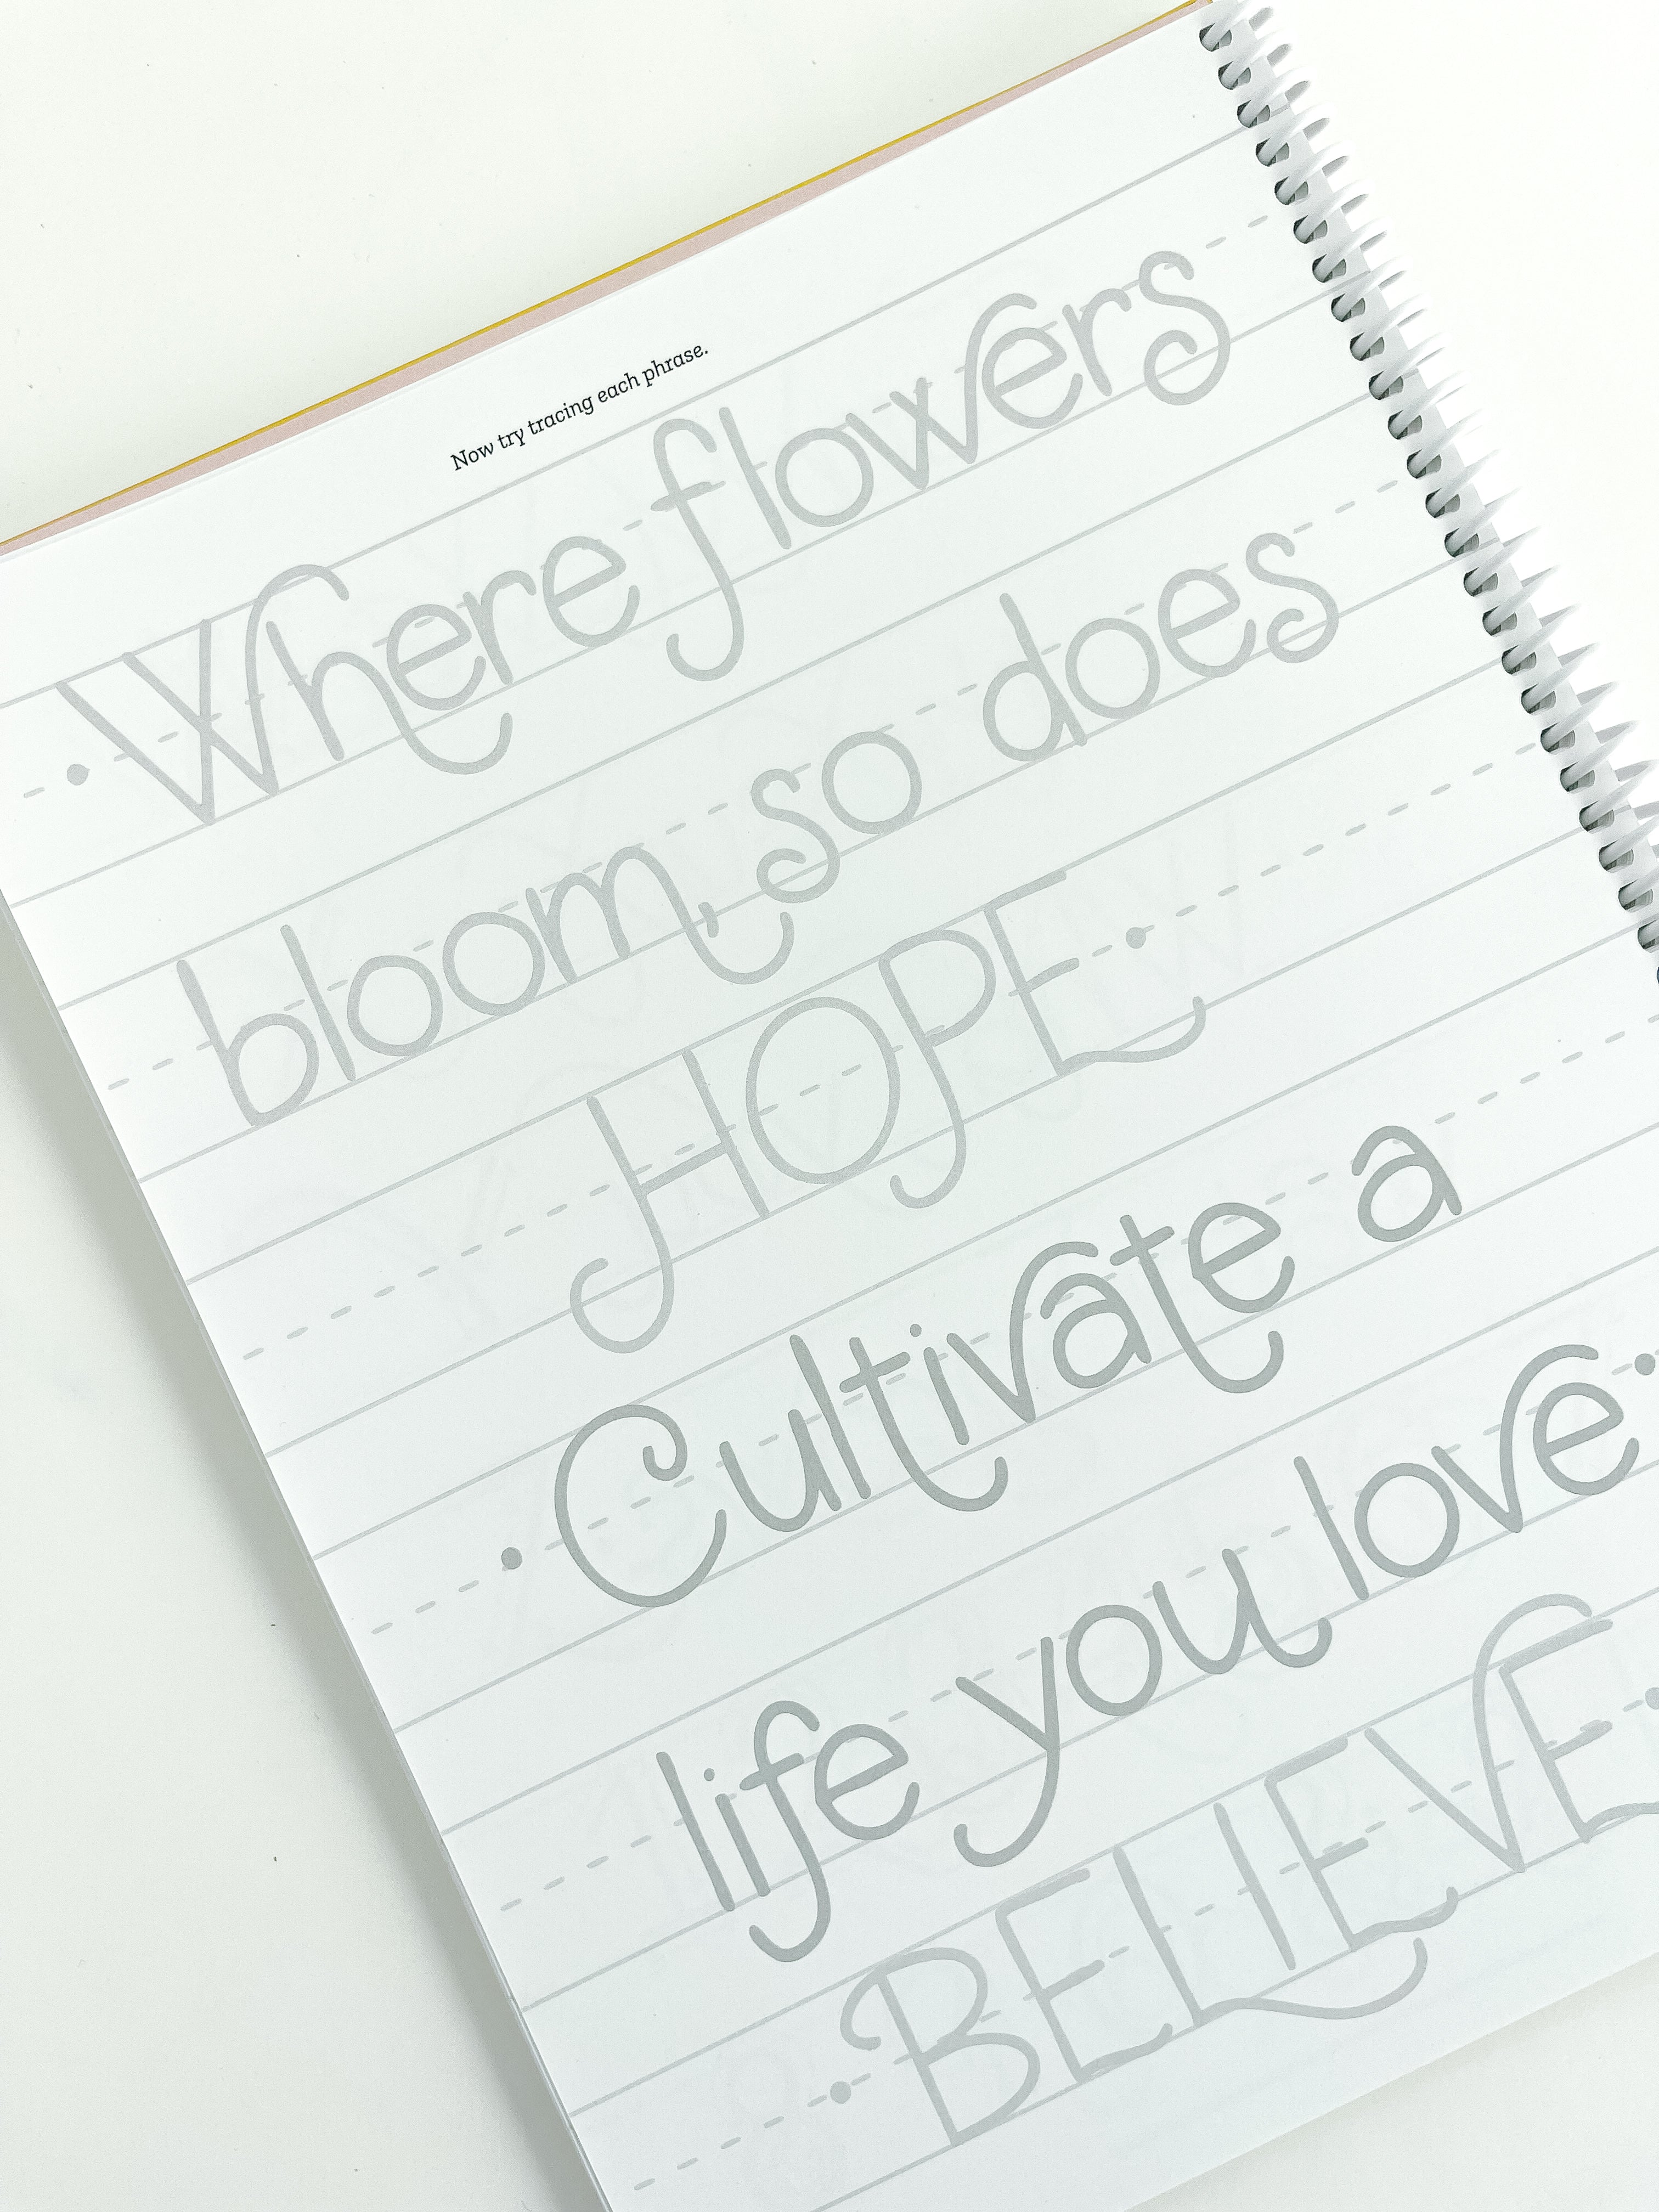 Now try tracing each phrase.
• Where flowers
bloom, so does
HOPE •
• Cultivate a
life you love •
• BELIEVE •